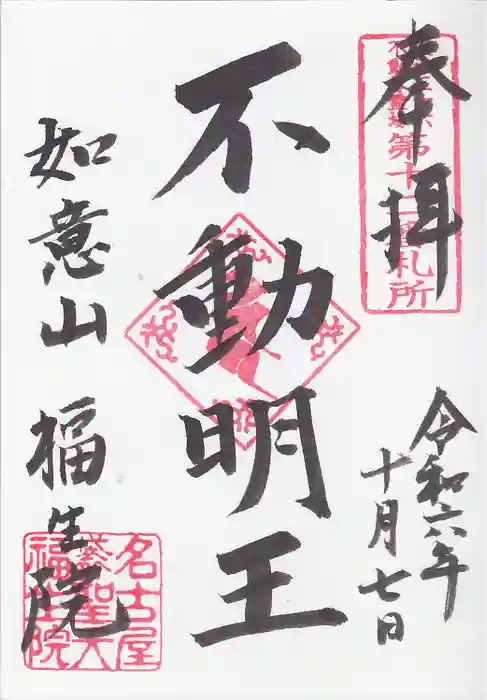 奉拝
第十
札所
令和六年
十月七日
不動明王
如意山 福生院
名古屋
聖天
福生院